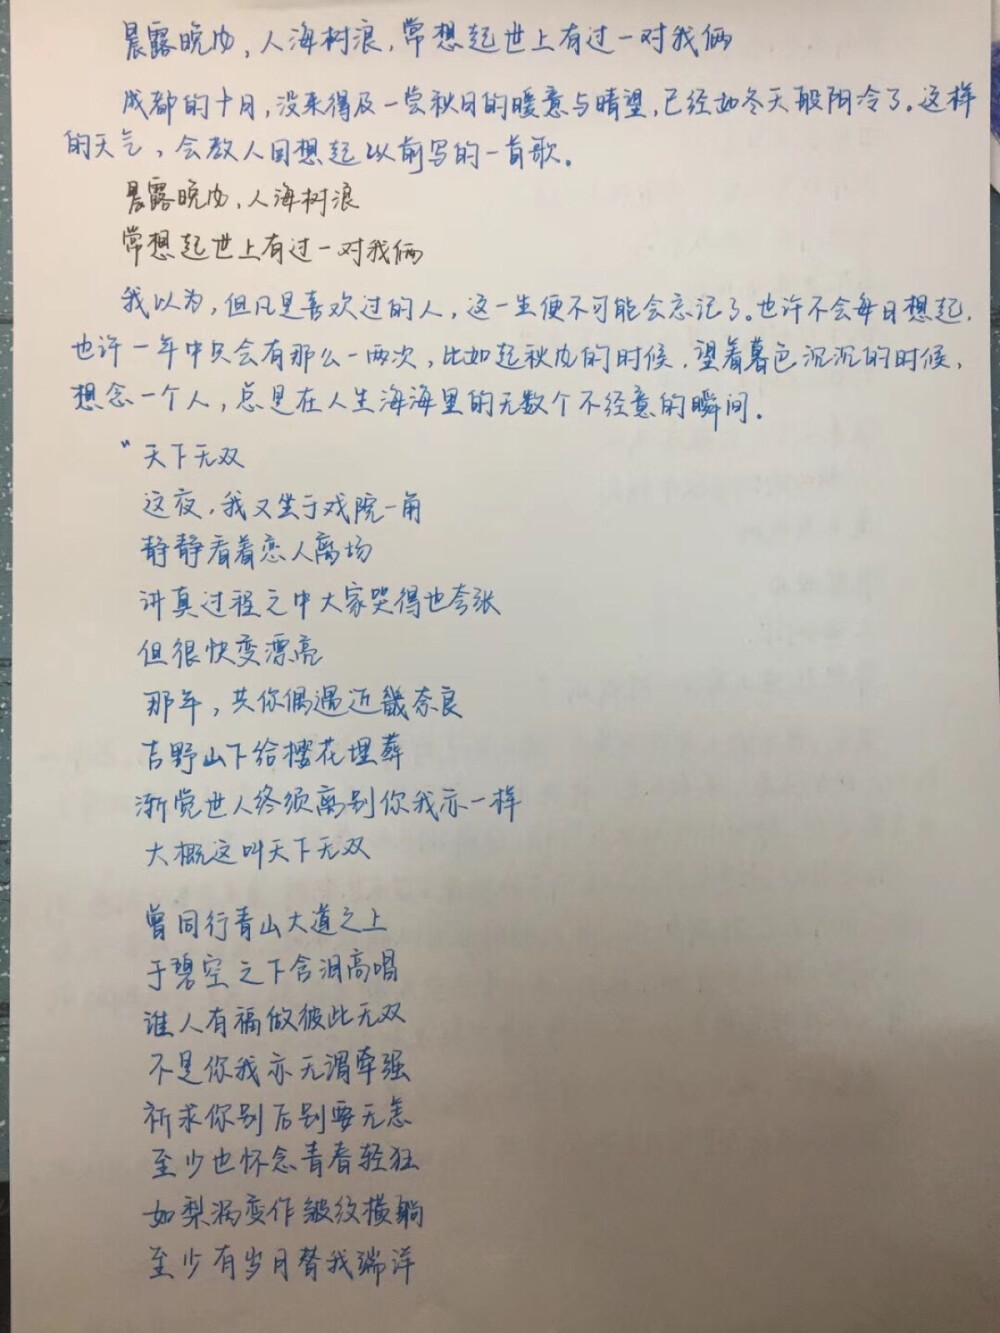 晨露晚风，人海树浪，常想起世上有过一对我俩
成都的十月，没来得及一尝秋日的暖意与晴望，已经如冬天般阴冷了。这样
的天气，会教人回想起以前写的一首歌。
晨露晚风，人海树浪
常想起世上有过一对我俩
我以为，但凡是喜欢过的人，这一生便不可能会忘记了。也许不会每日想起，
也许一年中只会有那么一两次，比如起秋风的时候，望着暮色沉沉的时候，
想念一个人，总是在人生海海里的无数个不经意的瞬间。
“天下无双
这夜，我又坐于戏院一角
静静看着恋人离场
讲真过程之中大家哭得也夸张
但很快变漂亮
那年，共你偶遇近畿奈良
吉野山下给樱花埋葬
渐觉世人终须离别你我亦一样
大概这叫天下无双
曾同行青山大道之上
于碧空之下含泪高唱
谁人有福做彼此无双
不是你我亦无谓牵强
祈求你别后别要无恙
至少也怀念青春轻狂
如梨涡变作皱纹横躺
至少有岁月替我端详